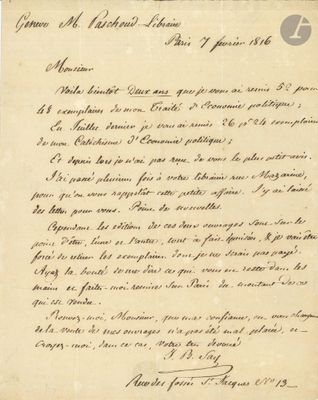 Geneve M. Paschoud Libraire
Paris 7 fevrier 1816
Monsieur
Voila bientôt deux ans que je vous ai remis 52 pour
48 exemplaires de mon Traité d'Economie politique;
En Juillet dernier je vous ai remis 26 pr 24 exemplaires
de mon Catéchisme d'Economie politique;
Et depuis lors je n'ai pas reçu de vous le plus petit avis.
J'ai passé plusieurs fois à votre librairie rue Mazarine,
pour qu'on vous rappelât cette petite affaire. J'y ai laissé
des lettres pour vous. Point de nouvelles.
Cependant les editions de ces deux ouvrages sont sur le
point d'être, l'une et l'autre, tout à fait épuisées, & je vais être
forcé de retirer les exemplaires dont je ne serais pas payé.
Ayez la bonté de me dire ce qui vous en reste dans les
mains et faites-moi remise sur Paris du montant de ce
qui est vendu.
Prouvez-moi, Monsieur, que ma confiance, en vous chargeant
de la vente de mes ouvrages n'a pas été mal placée, et
croyez-moi, dans ce cas, votre bien dévoué
J. B. Say
Rue des fossés St. Jacques No 13